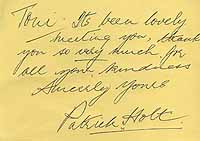 Toni: It's been lovely
meeting you, thank
you so very much for
all your kindness
Sincerely Yours
Patrick Holt.